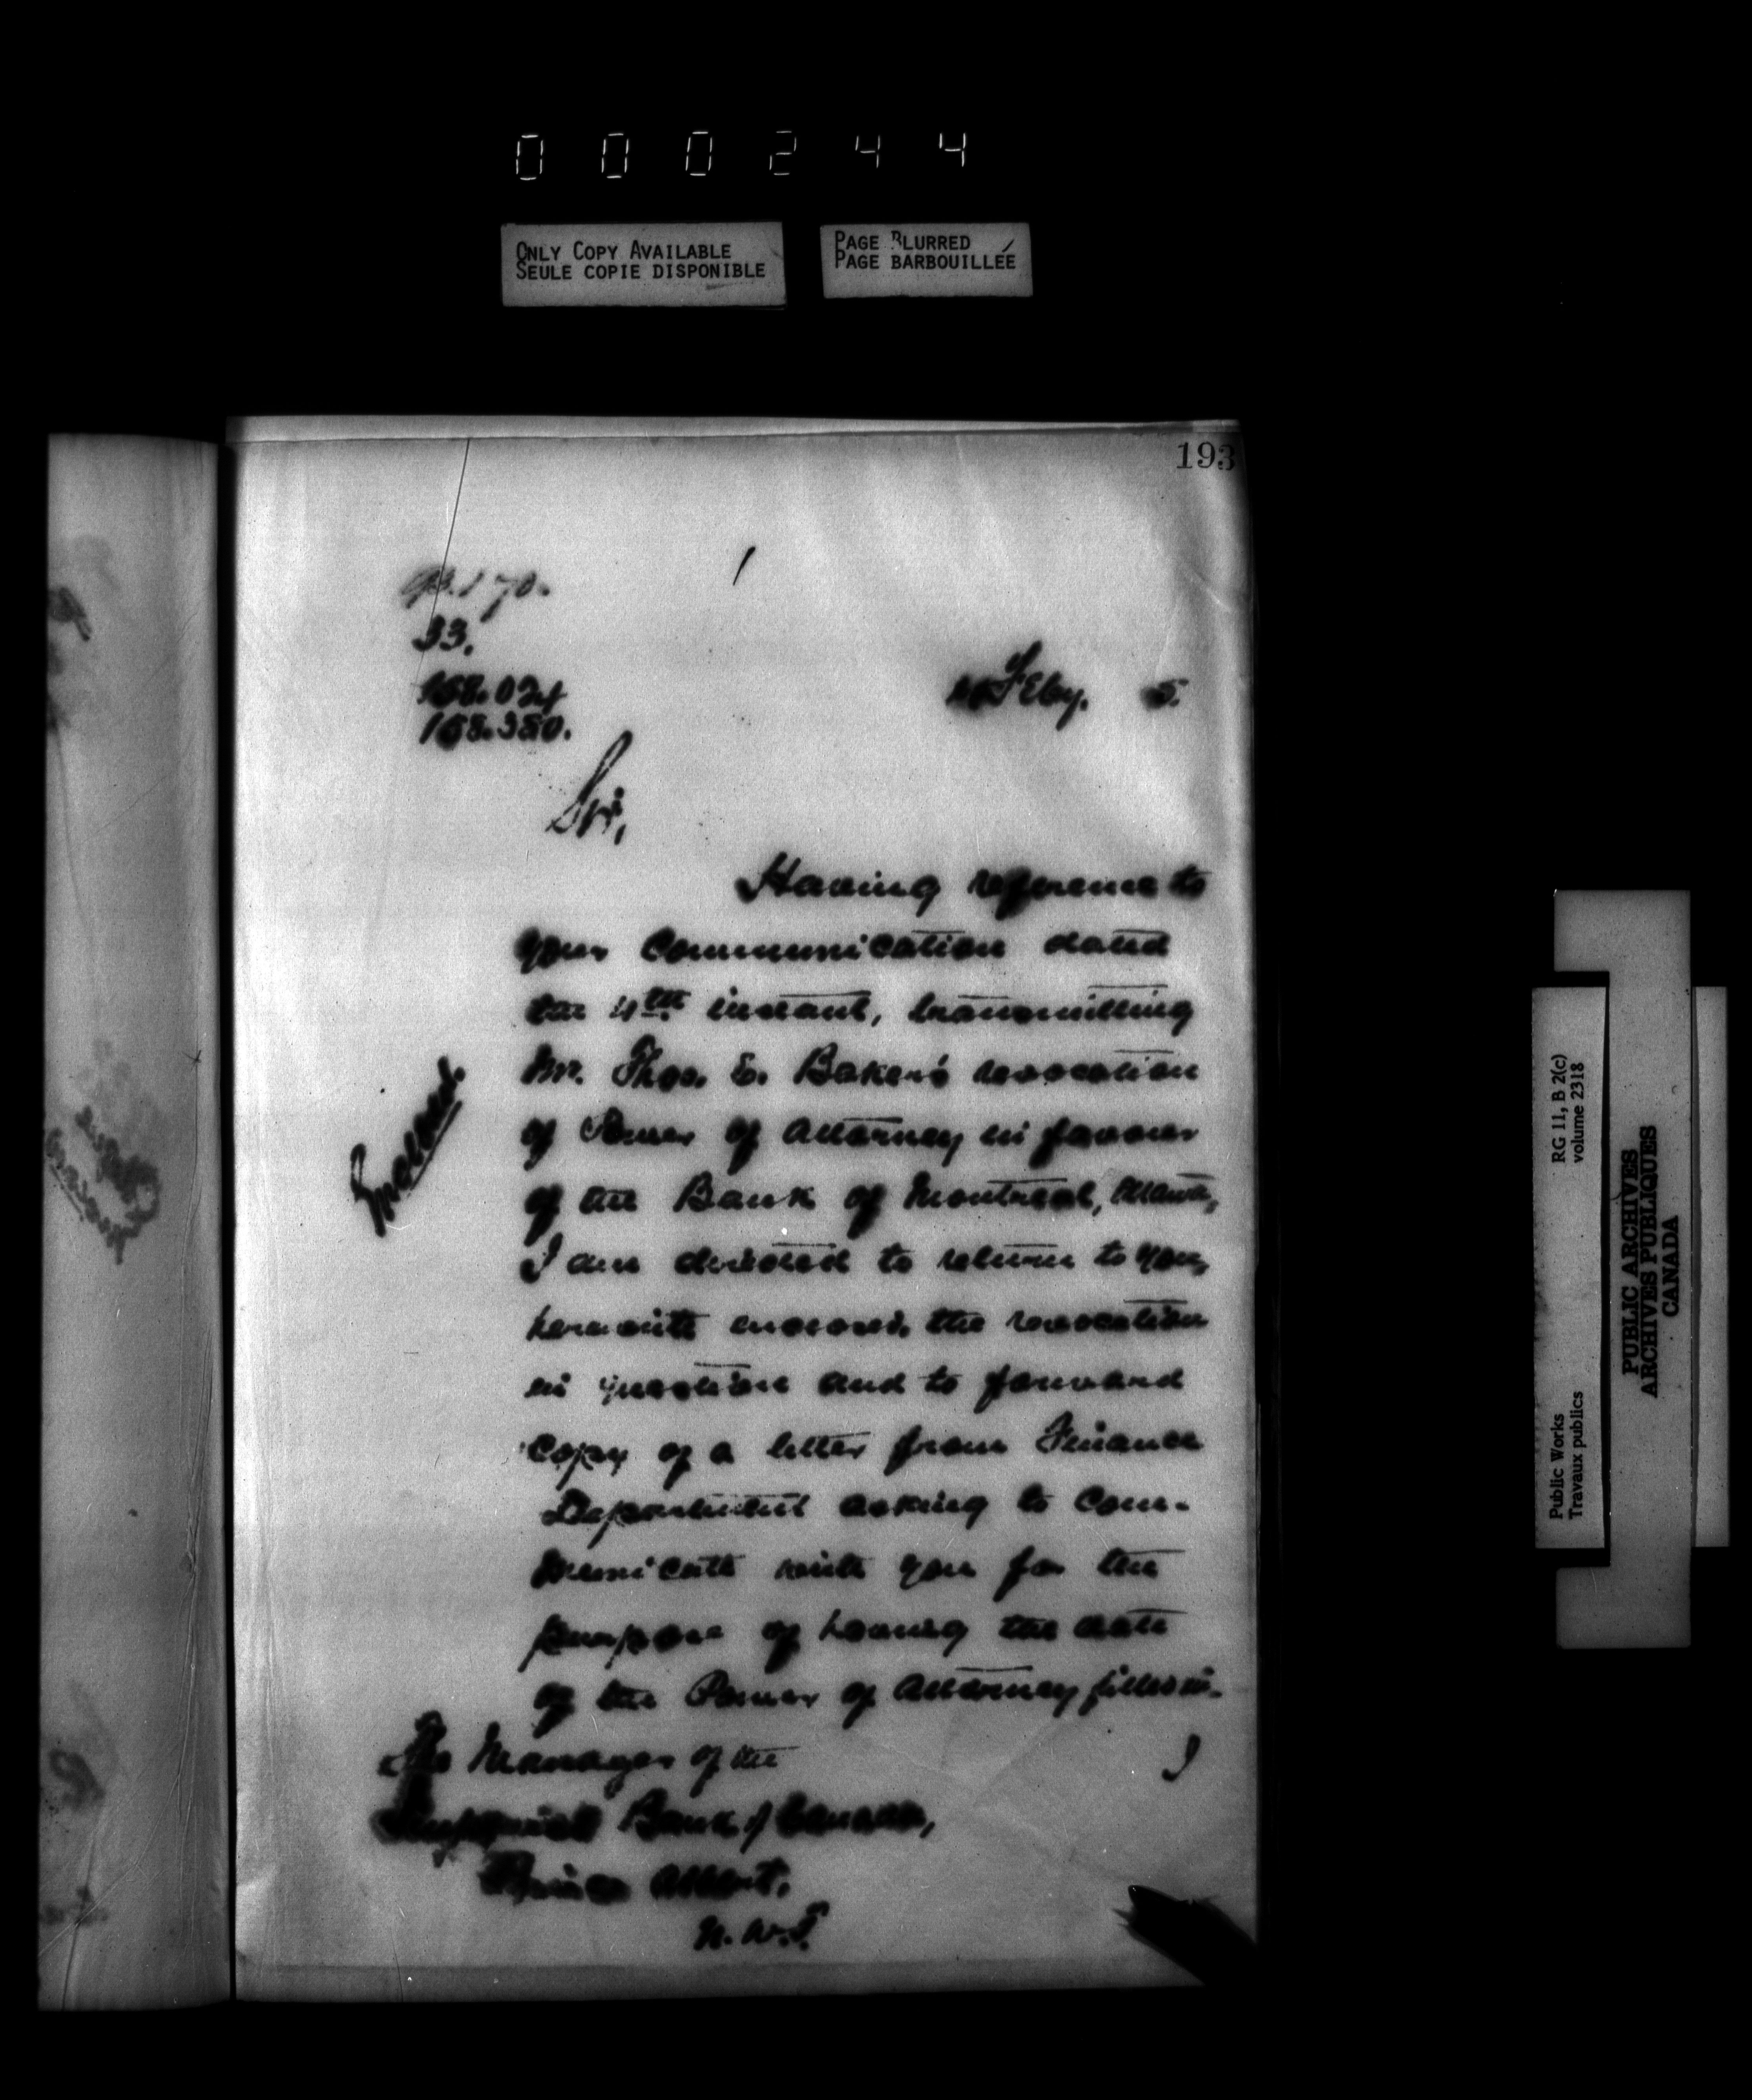 000244
ONLY COPY AVAILABLE
SEULE COPIE DISPONIBLE
PAGE BLURRED
PAGE BARBOUILLÉE
193
33.
158.024
158.350.
Feby. 5.
Sir,
Having reference to
your communication dated
the 4th instant, transmitting
Mr. Thos. E. Baker's revocation
of Power of Attorney in favour
of the Bank of Montreal, Ottawa,
I am directed to return to you,
herewith enclosed, the revocation
in question and to forward
copy of a letter from Finance
Department asking to com-
municate with you for the
purpose of having the date
of the Power of Attorney filled in.
I
The Manager of the
Imperial Bank of Canada,
Prince Albert,
N.W.T.
Enclosed.
Public Works
Travaux publics
RG 11, B 2(c)
volume 2318
PUBLIC ARCHIVES
ARCHIVES PUBLIQUES
CANADA